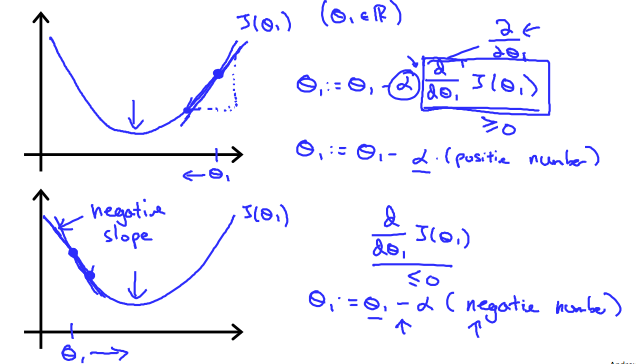 J(θ₁) (θ₁ ∈ ℝ)
∂/∂θ₁ ←
θ₁ := θ₁ - α d/dθ₁ J(θ₁)
≥ 0
θ₁ := θ₁ - α · (positive number)
← θ₁
negative
slope
J(θ₁)
d/dθ₁ J(θ₁)
≤ 0
θ₁ := θ₁ - α (negative number)
θ₁ →